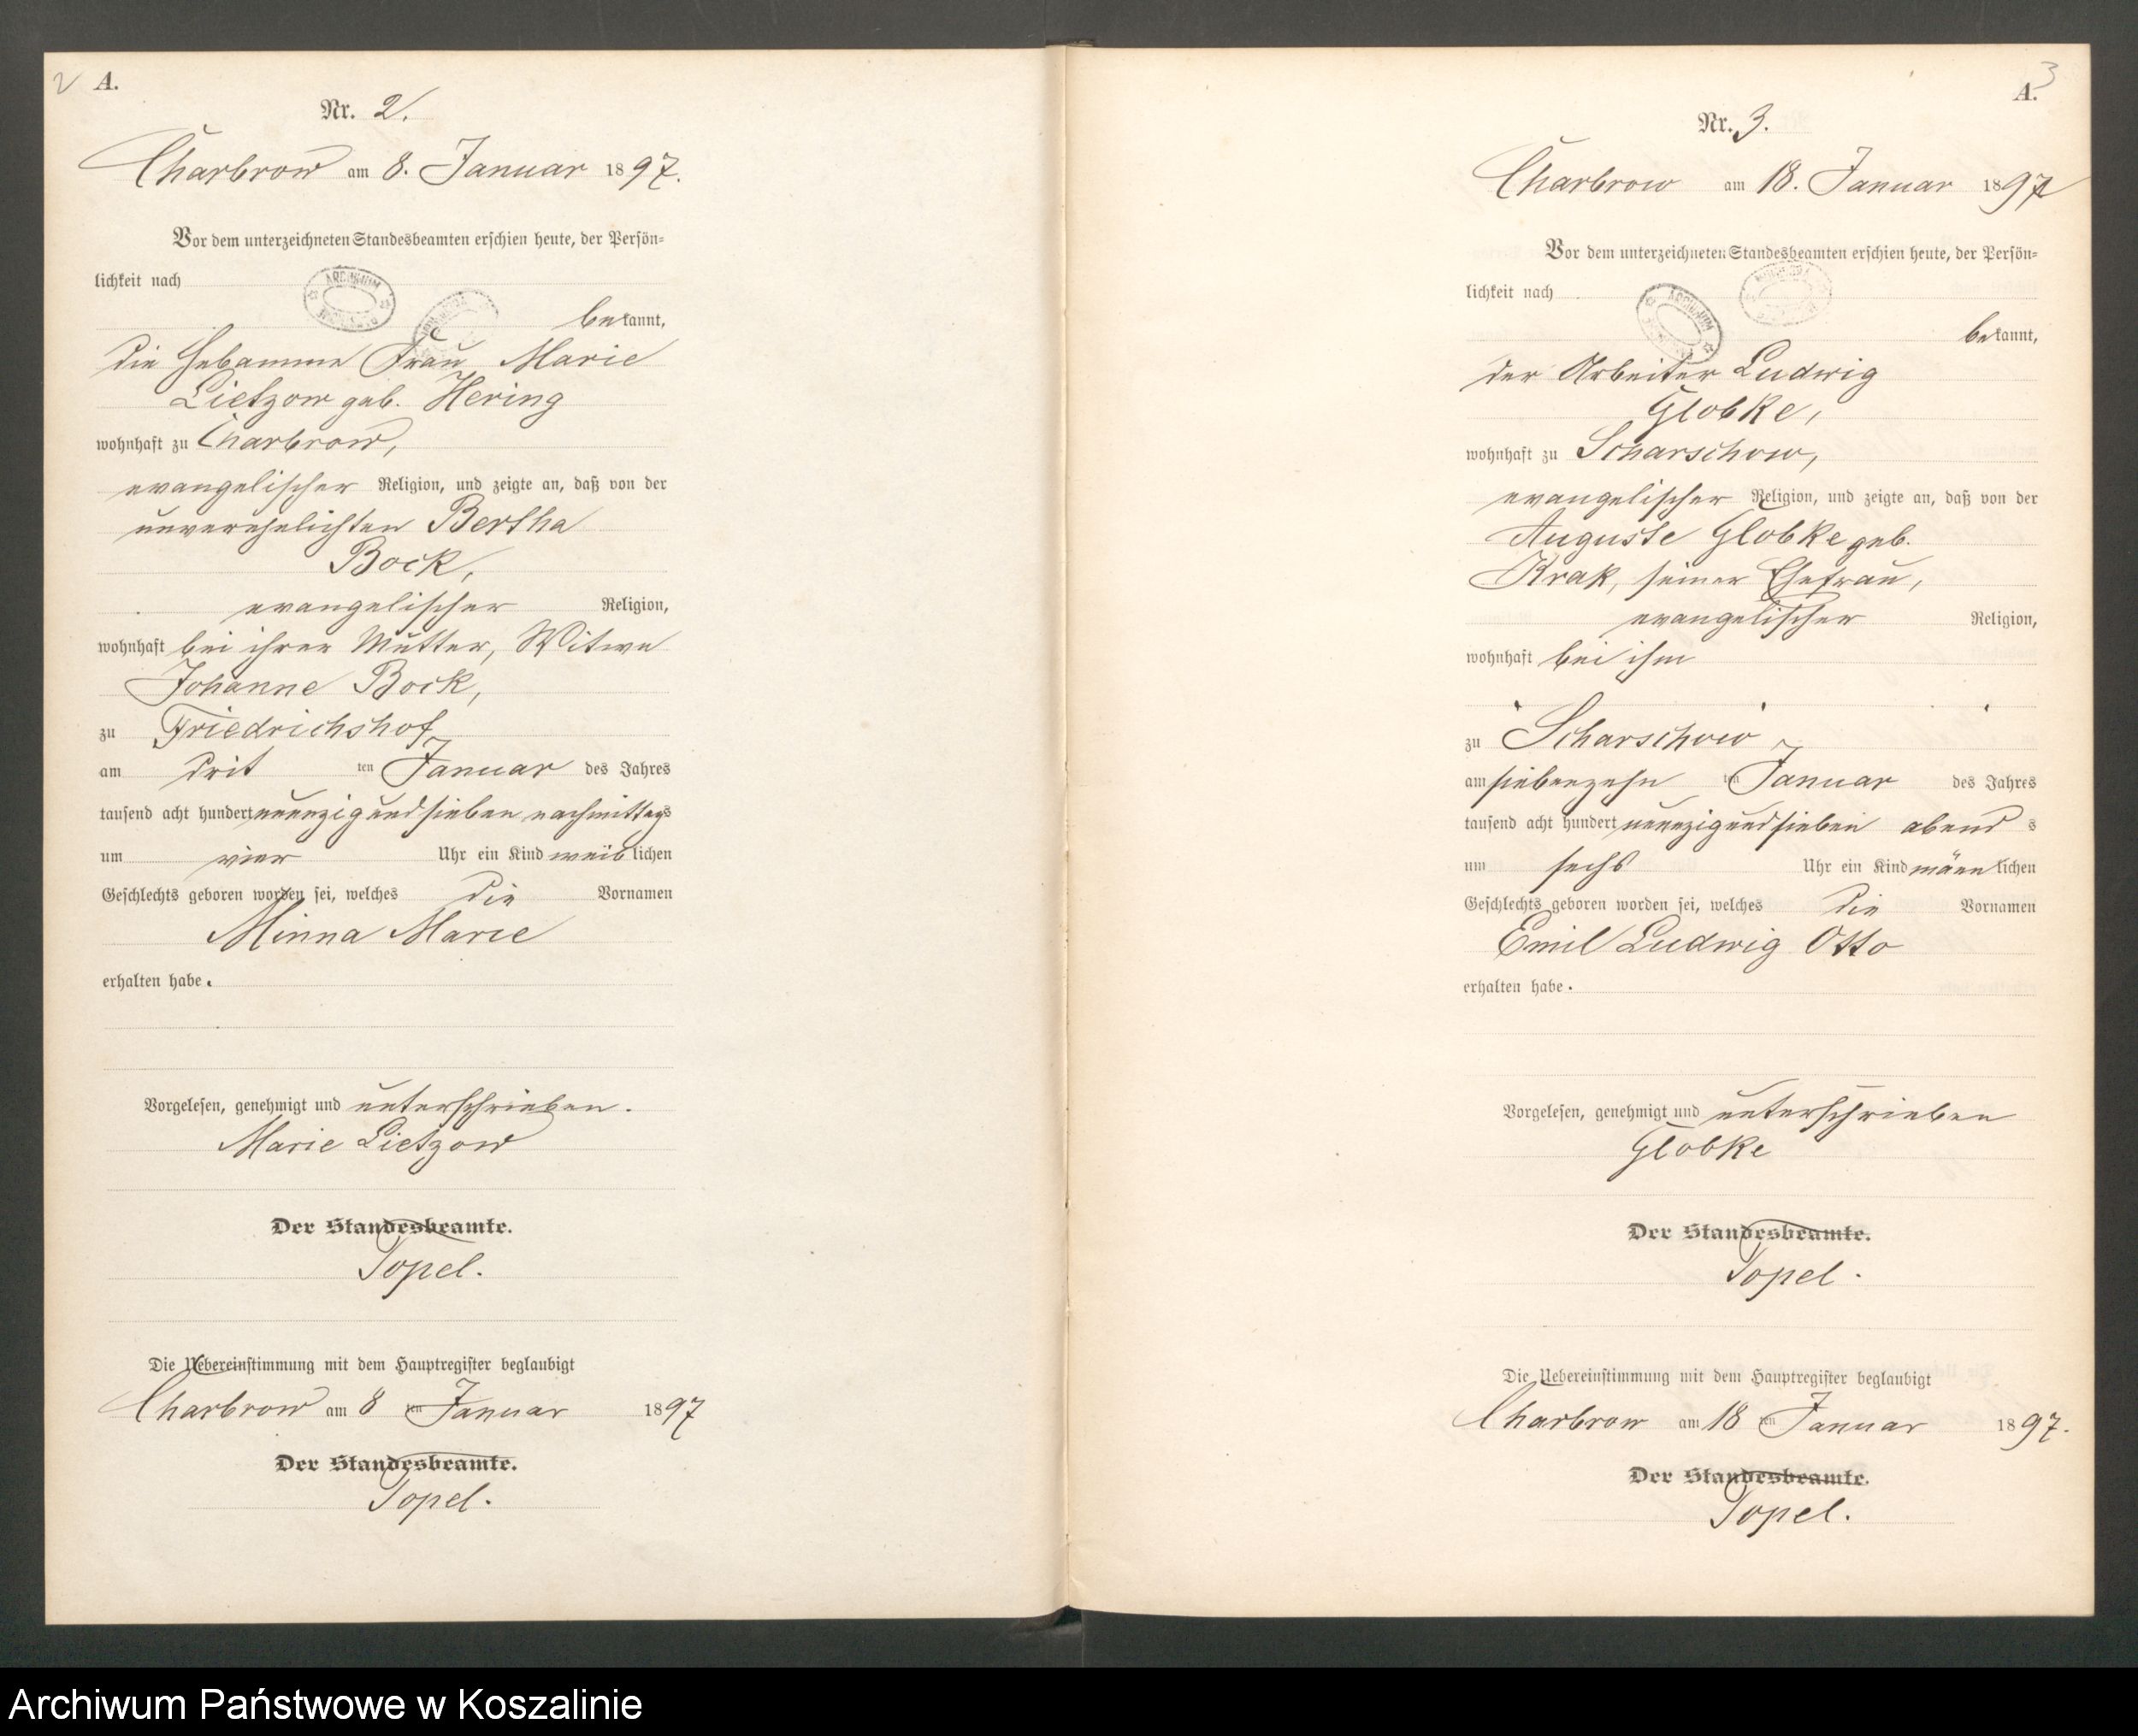 2 A.
Nr. 2.
Charbrow am 8. Januar 1897.
Vor dem unterzeichneten Standesbeamten erschien heute, der Persön=
lichkeit nach
bekannt,
die Hebamme Frau Marie
Lietzow geb. Hering
wohnhaft zu Charbrow,
evangelischer Religion, und zeigte an, daß von der
unverehelichten Bertha
Bock,
evangelischer Religion,
wohnhaft bei ihrer Mutter, Witwe
Johanne Bock,
zu Friedrichshof
am dritten Januar des Jahres
tausend acht hundert neunzigundsieben nachmittags
um vier Uhr ein Kind weiblichen
Geschlechts geboren worden sei, welches die Vornamen
Minna Marie
erhalten habe.
Vorgelesen, genehmigt und unterschrieben.
Marie Lietzow
Der Standesbeamte.
Topel.
Die Uebereinstimmung mit dem Hauptregister beglaubigt
Charbrow am 8ten Januar 1897
Der Standesbeamte.
Topel.
3
A.
Nr. 3.
Charbrow am 18. Januar 1897
Vor dem unterzeichneten Standesbeamten erschien heute, der Persön=
lichkeit nach
bekannt,
der Arbeiter Ludwig
Globke,
wohnhaft zu Scharschow,
evangelischer Religion, und zeigte an, daß von der
Auguste Globke geb.
Krak, seiner Ehefrau,
evangelischer Religion,
wohnhaft bei ihm
zu Scharschow
am siebenzehnten Januar des Jahres
tausend acht hundert neunzigundsieben abends
um sechs Uhr ein Kind männlichen
Geschlechts geboren worden sei, welches die Vornamen
Emil Ludwig Otto
erhalten habe.
Vorgelesen, genehmigt und unterschrieben
Globke
Der Standesbeamte.
Topel.
Die Uebereinstimmung mit dem Hauptregister beglaubigt
Charbrow am 18ten Januar 1897.
Der Standesbeamte.
Topel.
Archiwum Państwowe w Koszalinie